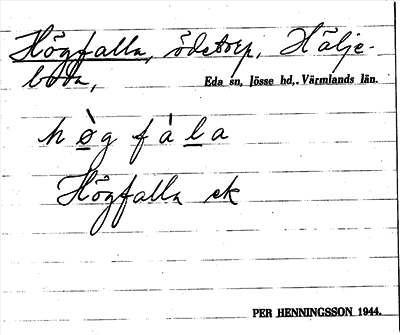 Högfalla, ödetorp, Hälje-
boda,
Eda sn, Jösse hd, Värmlands län.
hø̀gfàla
Högfalla ek
PER HENNINGSSON 1944.